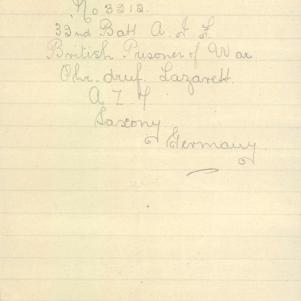 No 3212.
32nd Batt A. I. F
British Prisoner of War
Ohr. druf. Lazarett.
A Z 4
Saxony
Germany